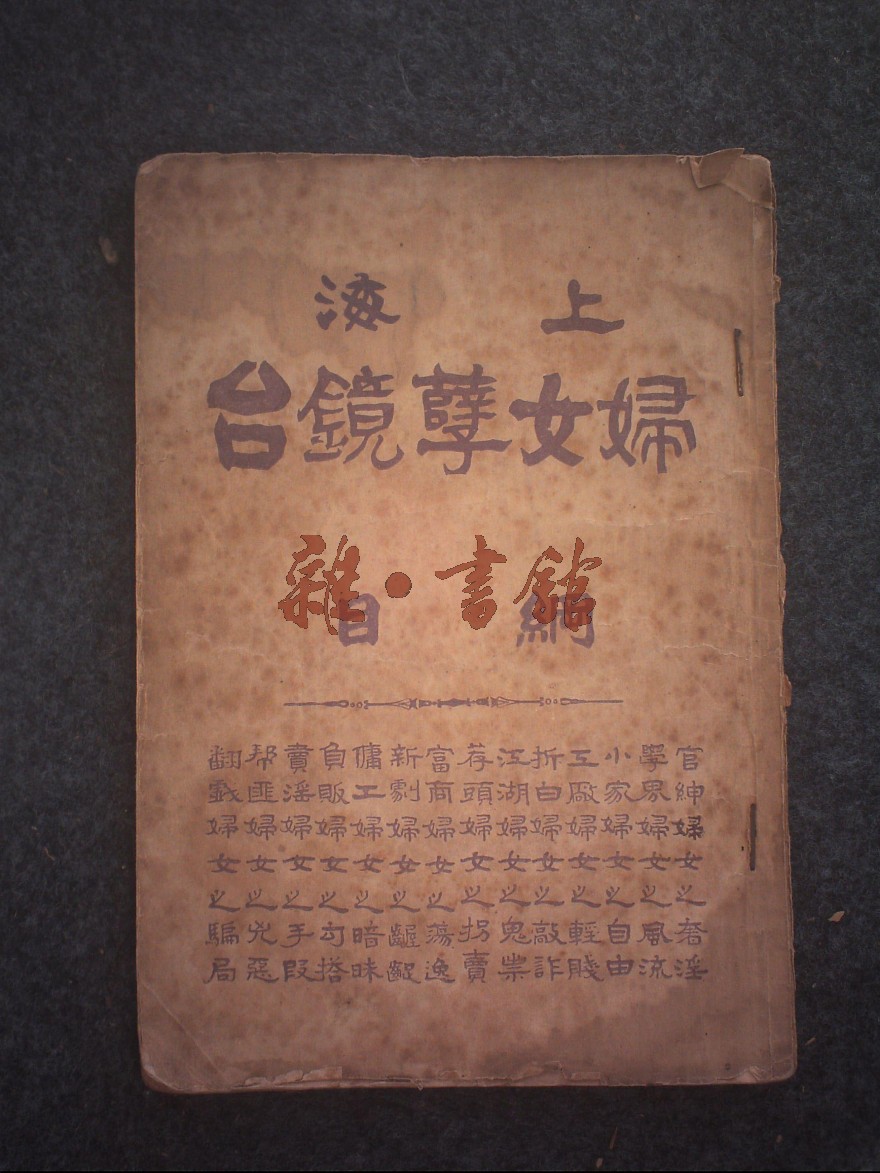 上海
婦女孽鏡台
雜·書館
綱目
官紳婦女之奢淫
學界婦女之風流
小家婦女之自由
工廠婦女之輕賤
折白婦女之敲詐
江湖婦女之鬼祟
荐頭婦女之拐賣
富商婦女之蕩逸
新劇婦女之齷齪
傭工婦女之暗昧
負販婦女之勾搭
賣淫婦女之手段
帮匪婦女之兇惡
翻戱婦女之騙局